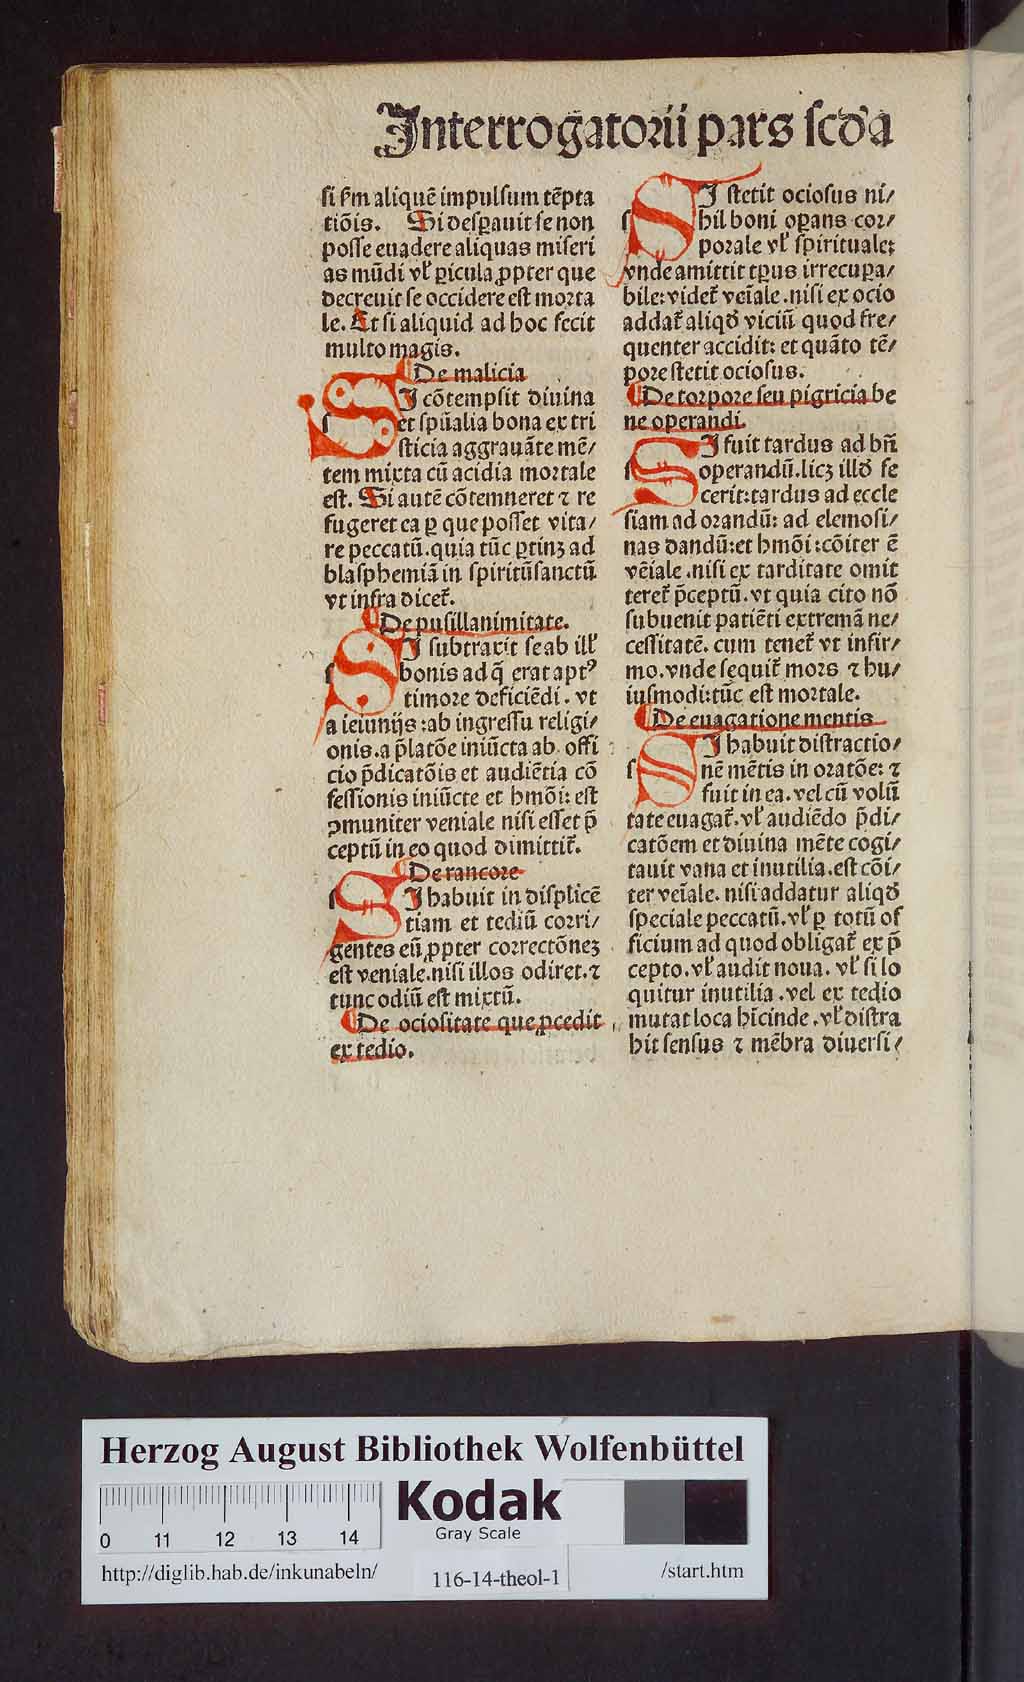 Interrogatorii pars scďa
si ẜm aliquẽ impulsum tẽpta
tiõis. Si desꝑauit se non
posse euadere aliquas miseri
as mũdi vl̓ ꝑicula ꝓpter que
decreuit se occidere est morta
le. Et si aliquid ad hoc fecit
multo magis.
De malicia
SI cõtempsit diuina
et spũalia bona ex tri
sticia aggrauãte mẽ/
tem mixta cũ acidia mortale
est. Si autẽ cõtemneret ⁊ re
fugeret ea ꝑ que posset vita/
re peccatũ. quia tũc ꝑtinꝫ ad
blasphemiã in spiritũsanctũ
vt infra dicet̃.
De pusillanimitate.
SI subtraxit se ab ill̓
bonis ad q̃ erat aptꝰ
timore deficiẽdi. vt
a ieiunijs: ab ingressu religi/
onis. a p̃latõe iniũcta ab offi
cio p̃dicatõis et audiẽtia cõ
fessionis iniũcte et hmõi: est
ꝯmuniter veniale nisi esset p̃
ceptũ in eo quod dimittit̃.
De rancore
SI habuit in displicẽ
tiam et tediũ corri/
gentes eũ ꝓpter correctõneꝫ
est veniale. nisi illos odiret. ⁊
tunc odiũ est mixtũ.
De ociositate que ꝓcedit
ex tedio.
SI stetit ociosus ni/
hil boni oꝑans cor/
porale vl̓ spirituale:
vnde amittit tꝑus irrecupa/
bile: videt̃ veĩale. nisi ex ocio
addat̃ aliqď viciũ quod fre/
quenter accidit: et quãto tẽ/
pore stetit ociosus.
De torpore seu pigricia be
ne operandi.
SI fuit tardus ad bñ
operandũ. licꝫ illď fe
cerit: tardus ad eccle
siam ad orandũ: ad elemosi/
nas dandũ: et hmõi: cõiter ẽ
vẽiale. nisi ex tarditate omit
teret̃ p̃ceptũ. vt quia cito nõ
subuenit patiẽti extremã ne/
cessitatẽ. cum tenet̃ vt infir/
mo. vnde sequit̃ mors ⁊ hu/
iusmodi: tũc est mortale.
De euagatione mentis
SI habuit distractio/
nẽ mẽtis in oratõe: ⁊
fuit in ea. vel cũ volũ
tate euagat̃. vl̓ audiẽdo p̃di/
catõem et diuina mẽte cogi/
tauit vana et inutilia. est cõi/
ter veĩale. nisi addatur aliqď
speciale peccatũ. vl̓ ꝑ totũ of
ficium ad quod obligat̃ ex p̃
cepto. vl̓ audit noua. vl̓ si lo
quitur inutilia. vel ex tedio
mutat loca hicinde. vl̓ distra
hit sensus ⁊ mẽbra diuersi/
Herzog August Bibliothek Wolfenbüttel
Kodak
Gray Scale
0 11 12 13 14
http://diglib.hab.de/inkunabeln/
116-14-theol-1
/start.htm